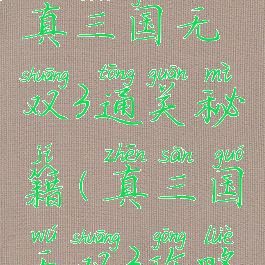 真三国无
shuāng tōng guān mì
双3通关秘
jí zhēn sān guó
籍(真三国
wú shuāng gōng lüè
无双3攻略